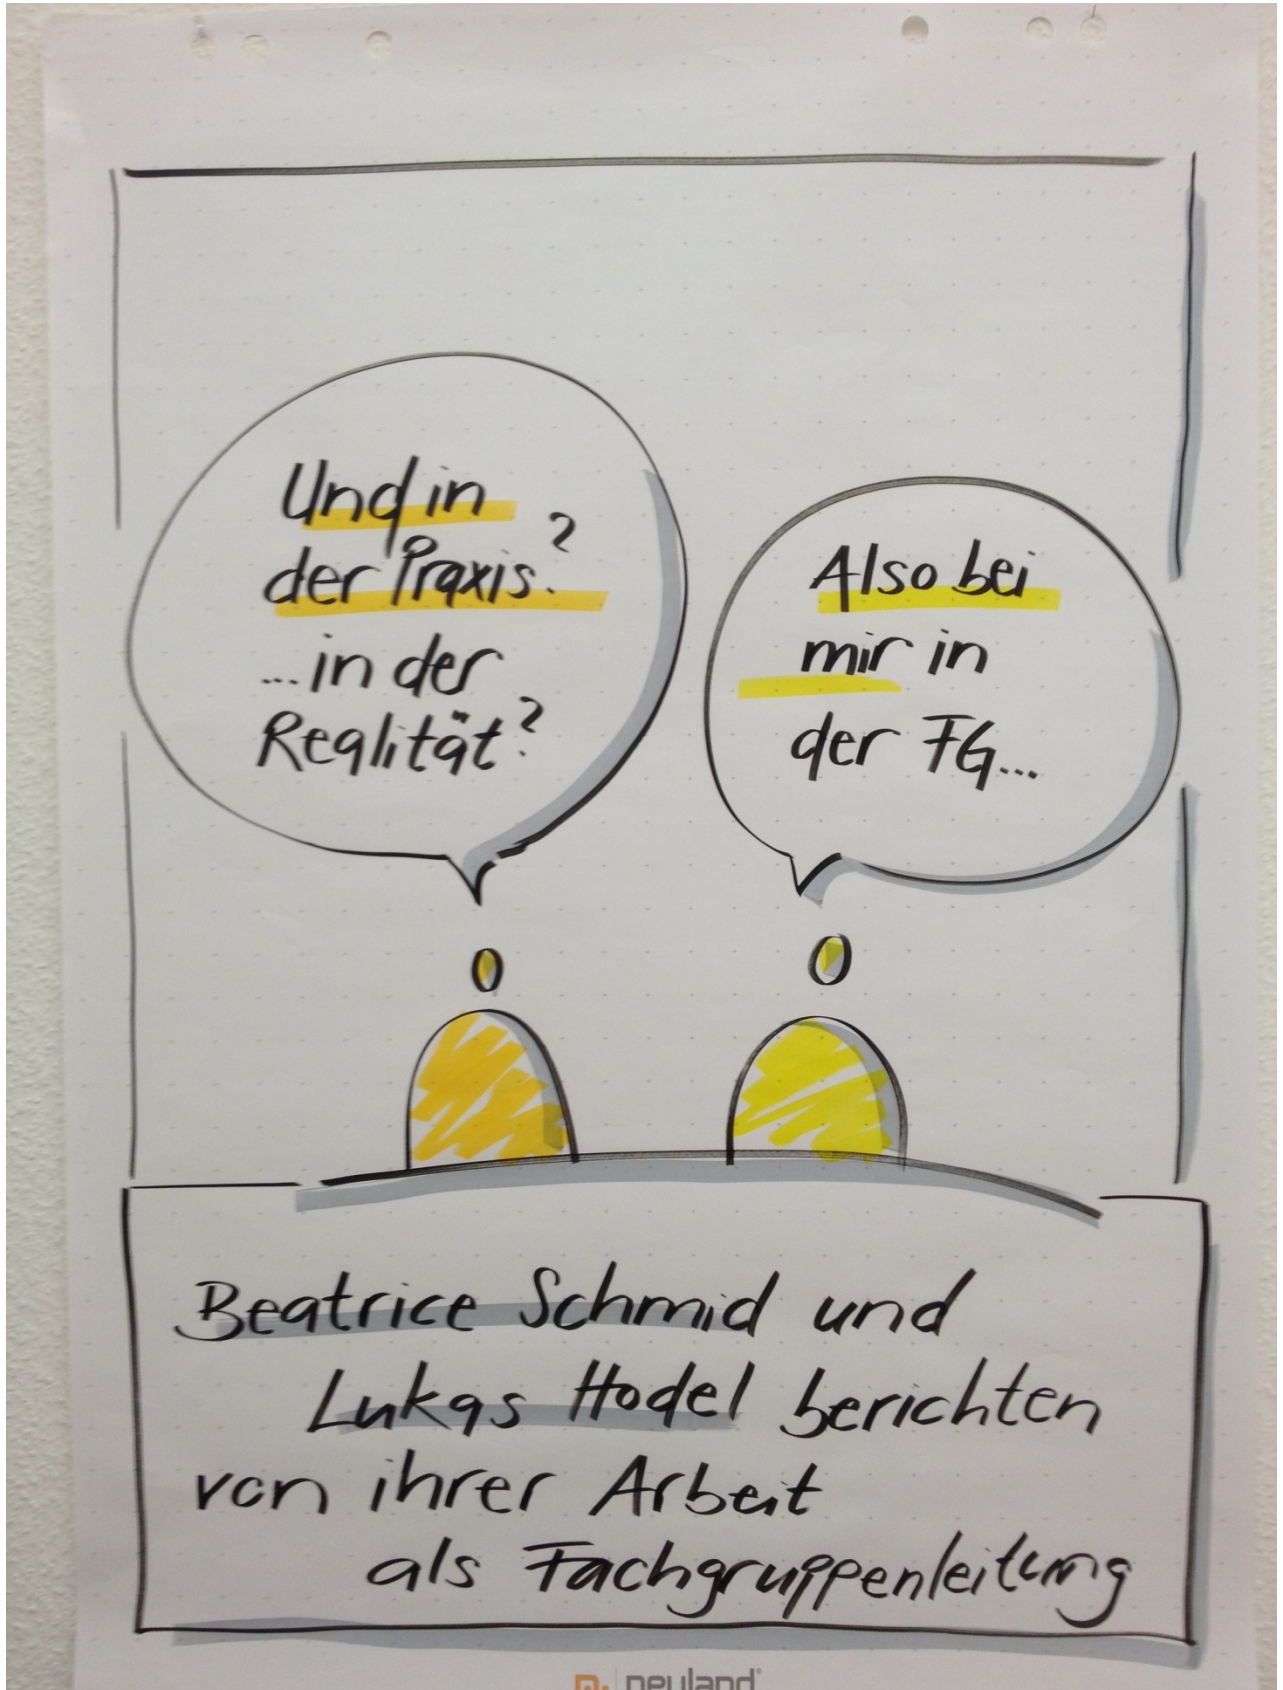 Und in
der Praxis?
...in der
Realität?
Also bei
mir in
der FG...
Beatrice Schmid und
Lukas Hodel berichten
von ihrer Arbeit
als Fachgruppenleitung
neuland